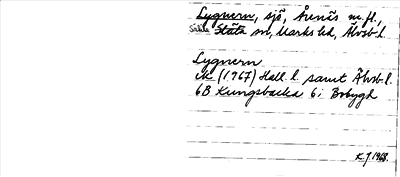 Lygnern, sjö, Årenäs m.fl.,
Sätila Stäta sn, Marks hd, Älvsb. l.
Lygnern
ek (1967) Hall. l. samt Älvsb. l.
6B Kungsbacka 6i Bobygd
K.J. 1968.